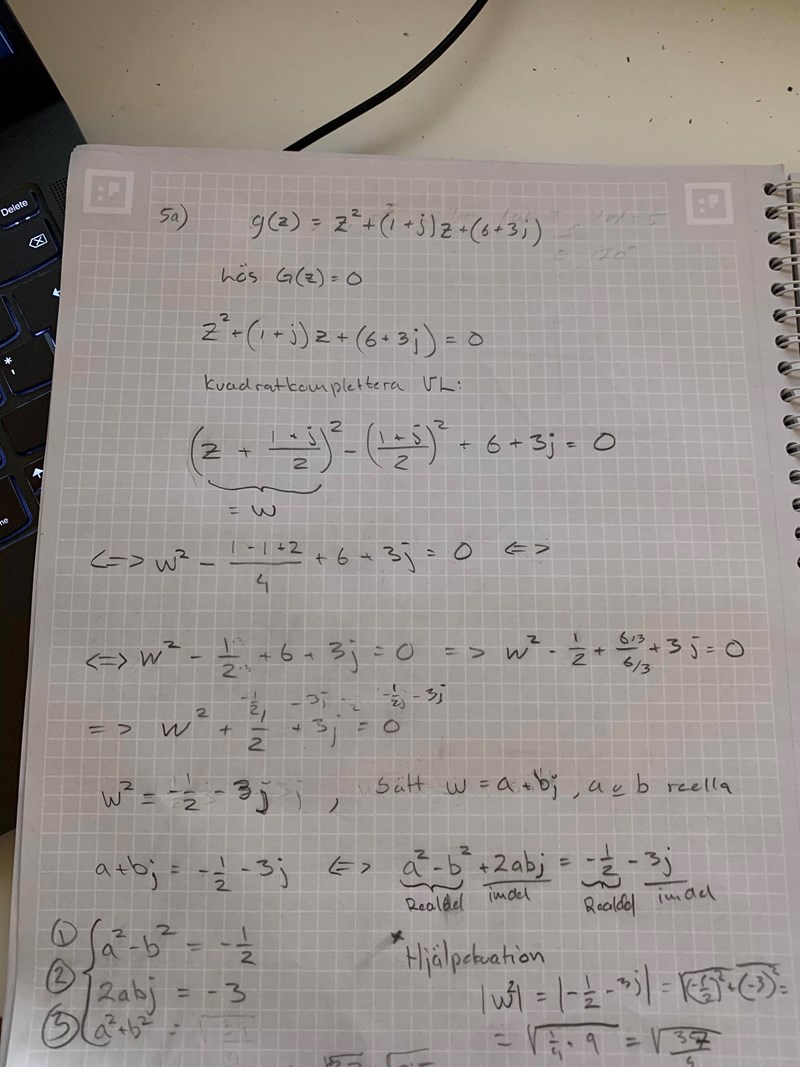 Delete
5a) g(z) = z² + (1+j)z + (6+3j)
lös G(z) = 0
z² + (1+j)z + (6+3j) = 0
kvadratkomplettera VL:
(z + (1+j)/2)² - ((1+j)/2)² + 6 + 3j = 0
= w
<=> w² - (1-1+2)/4 + 6 + 3j = 0 <=>
<=> w² - 1/2 + 6 + 3j = 0 => w² - 1/2 + 6/3/6/3 + 3j = 0
-1/2 -3j -1/2 -3j
=> w² + 1/2 + 3j = 0
w² = -1/2 - 3j, Sätt w = a + bj, a o b reella
a+bj = -1/2 - 3j <=> a² - b² + 2abj = -1/2 - 3j
Realdel imdel Realdel imdel
① a² - b² = -1/2
* Hjälpekvation
② 2abj = -3
|w²| = |-1/2 - 3j| = √((-1/2)² + (-3)²) =
③ a² + b² =
= √(1/4 · 9) = √(37/4)